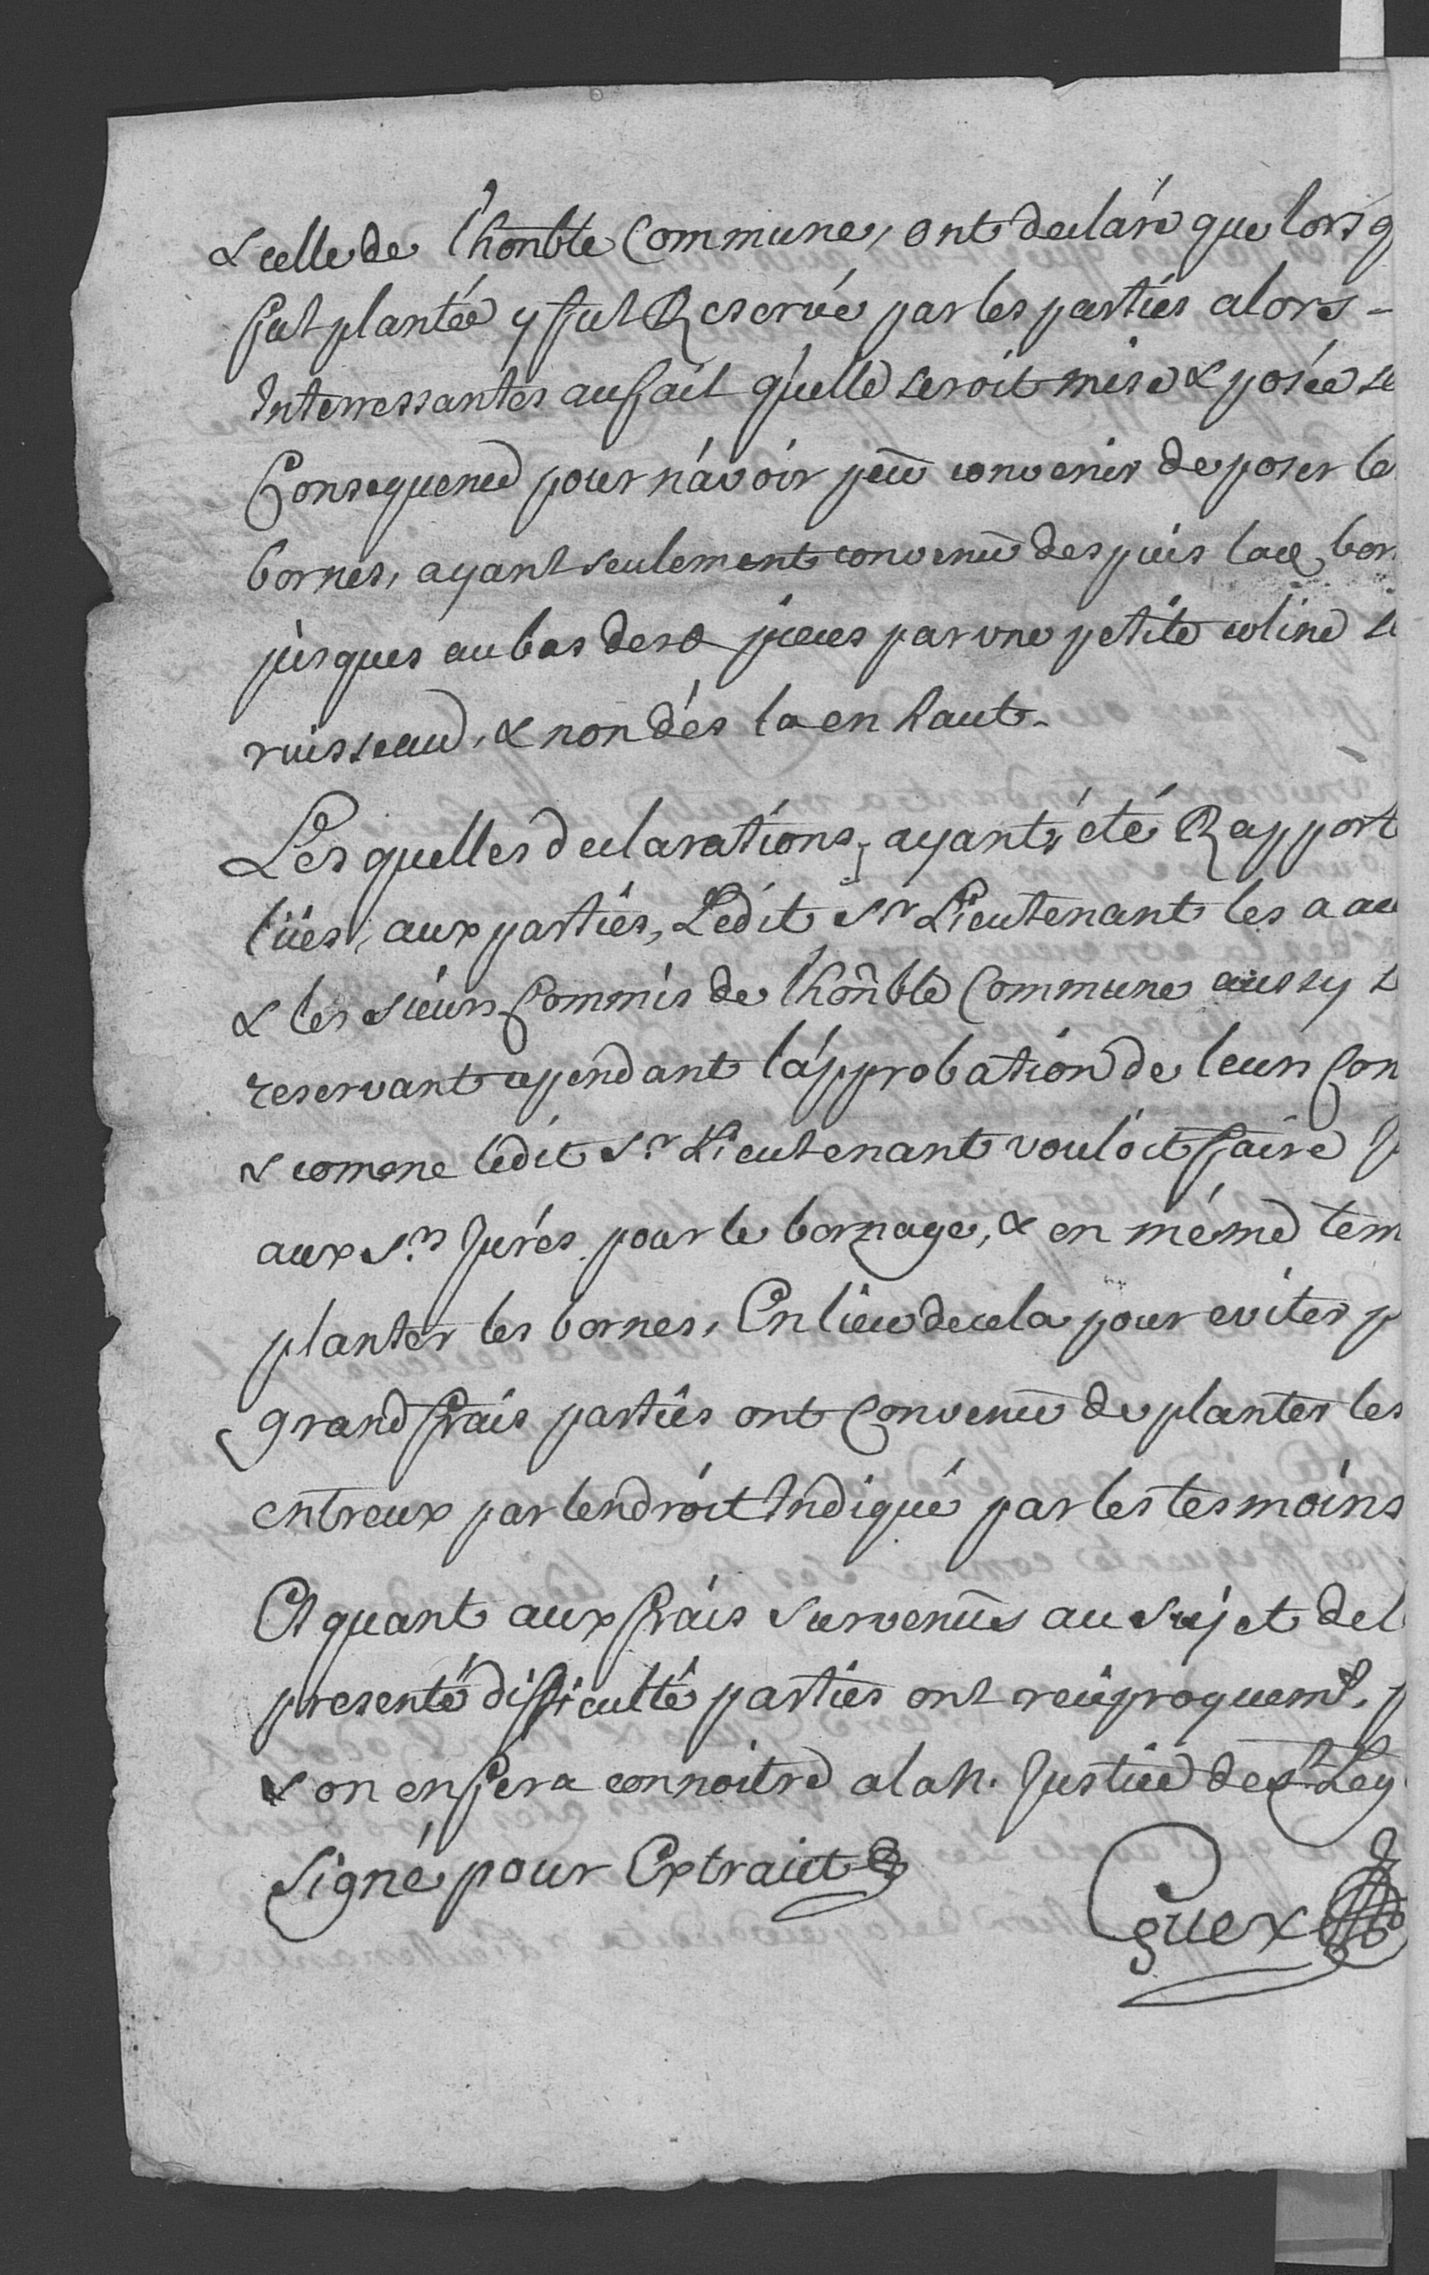 & celle de l'honble Commune, ont declaré que lors q
fut plantée y fut Reservé par les parties alors -
Interressantes au fait qu'elle seroit mise & posée se
Consequence pour n'avoir peü convenir de poser le
bornes, ayant seulement convenü despuis lad. bor
jusques au bas desd. pieces par une petite coline
ruisseau, & non dés la en haut.
Les quelles declarations, ayants été Rapport
lüés, aux partiés, Ledit Sr. Lieutenant les a ac
& les sieurs Commis de l'honble Commune aussy
reservant cependant l'approbation de leurs Con
& comme ledit Sr. Lieutenant vouloit faire
aux Srs. Jurés pour le bornage, & en méme tem
planter les bornes, En lieu de cela pour eviter p
grand frais partiés ont Convenü de planter les
entreux par lendroit Indiqué par les tesmoins
Et quant aux frais survenüs au sujet de l
presente difficulté parties ont reciproquemt. p
& on en fera connoitre a la h. Justice de St. Leg
Signé pour Extraict
Guex